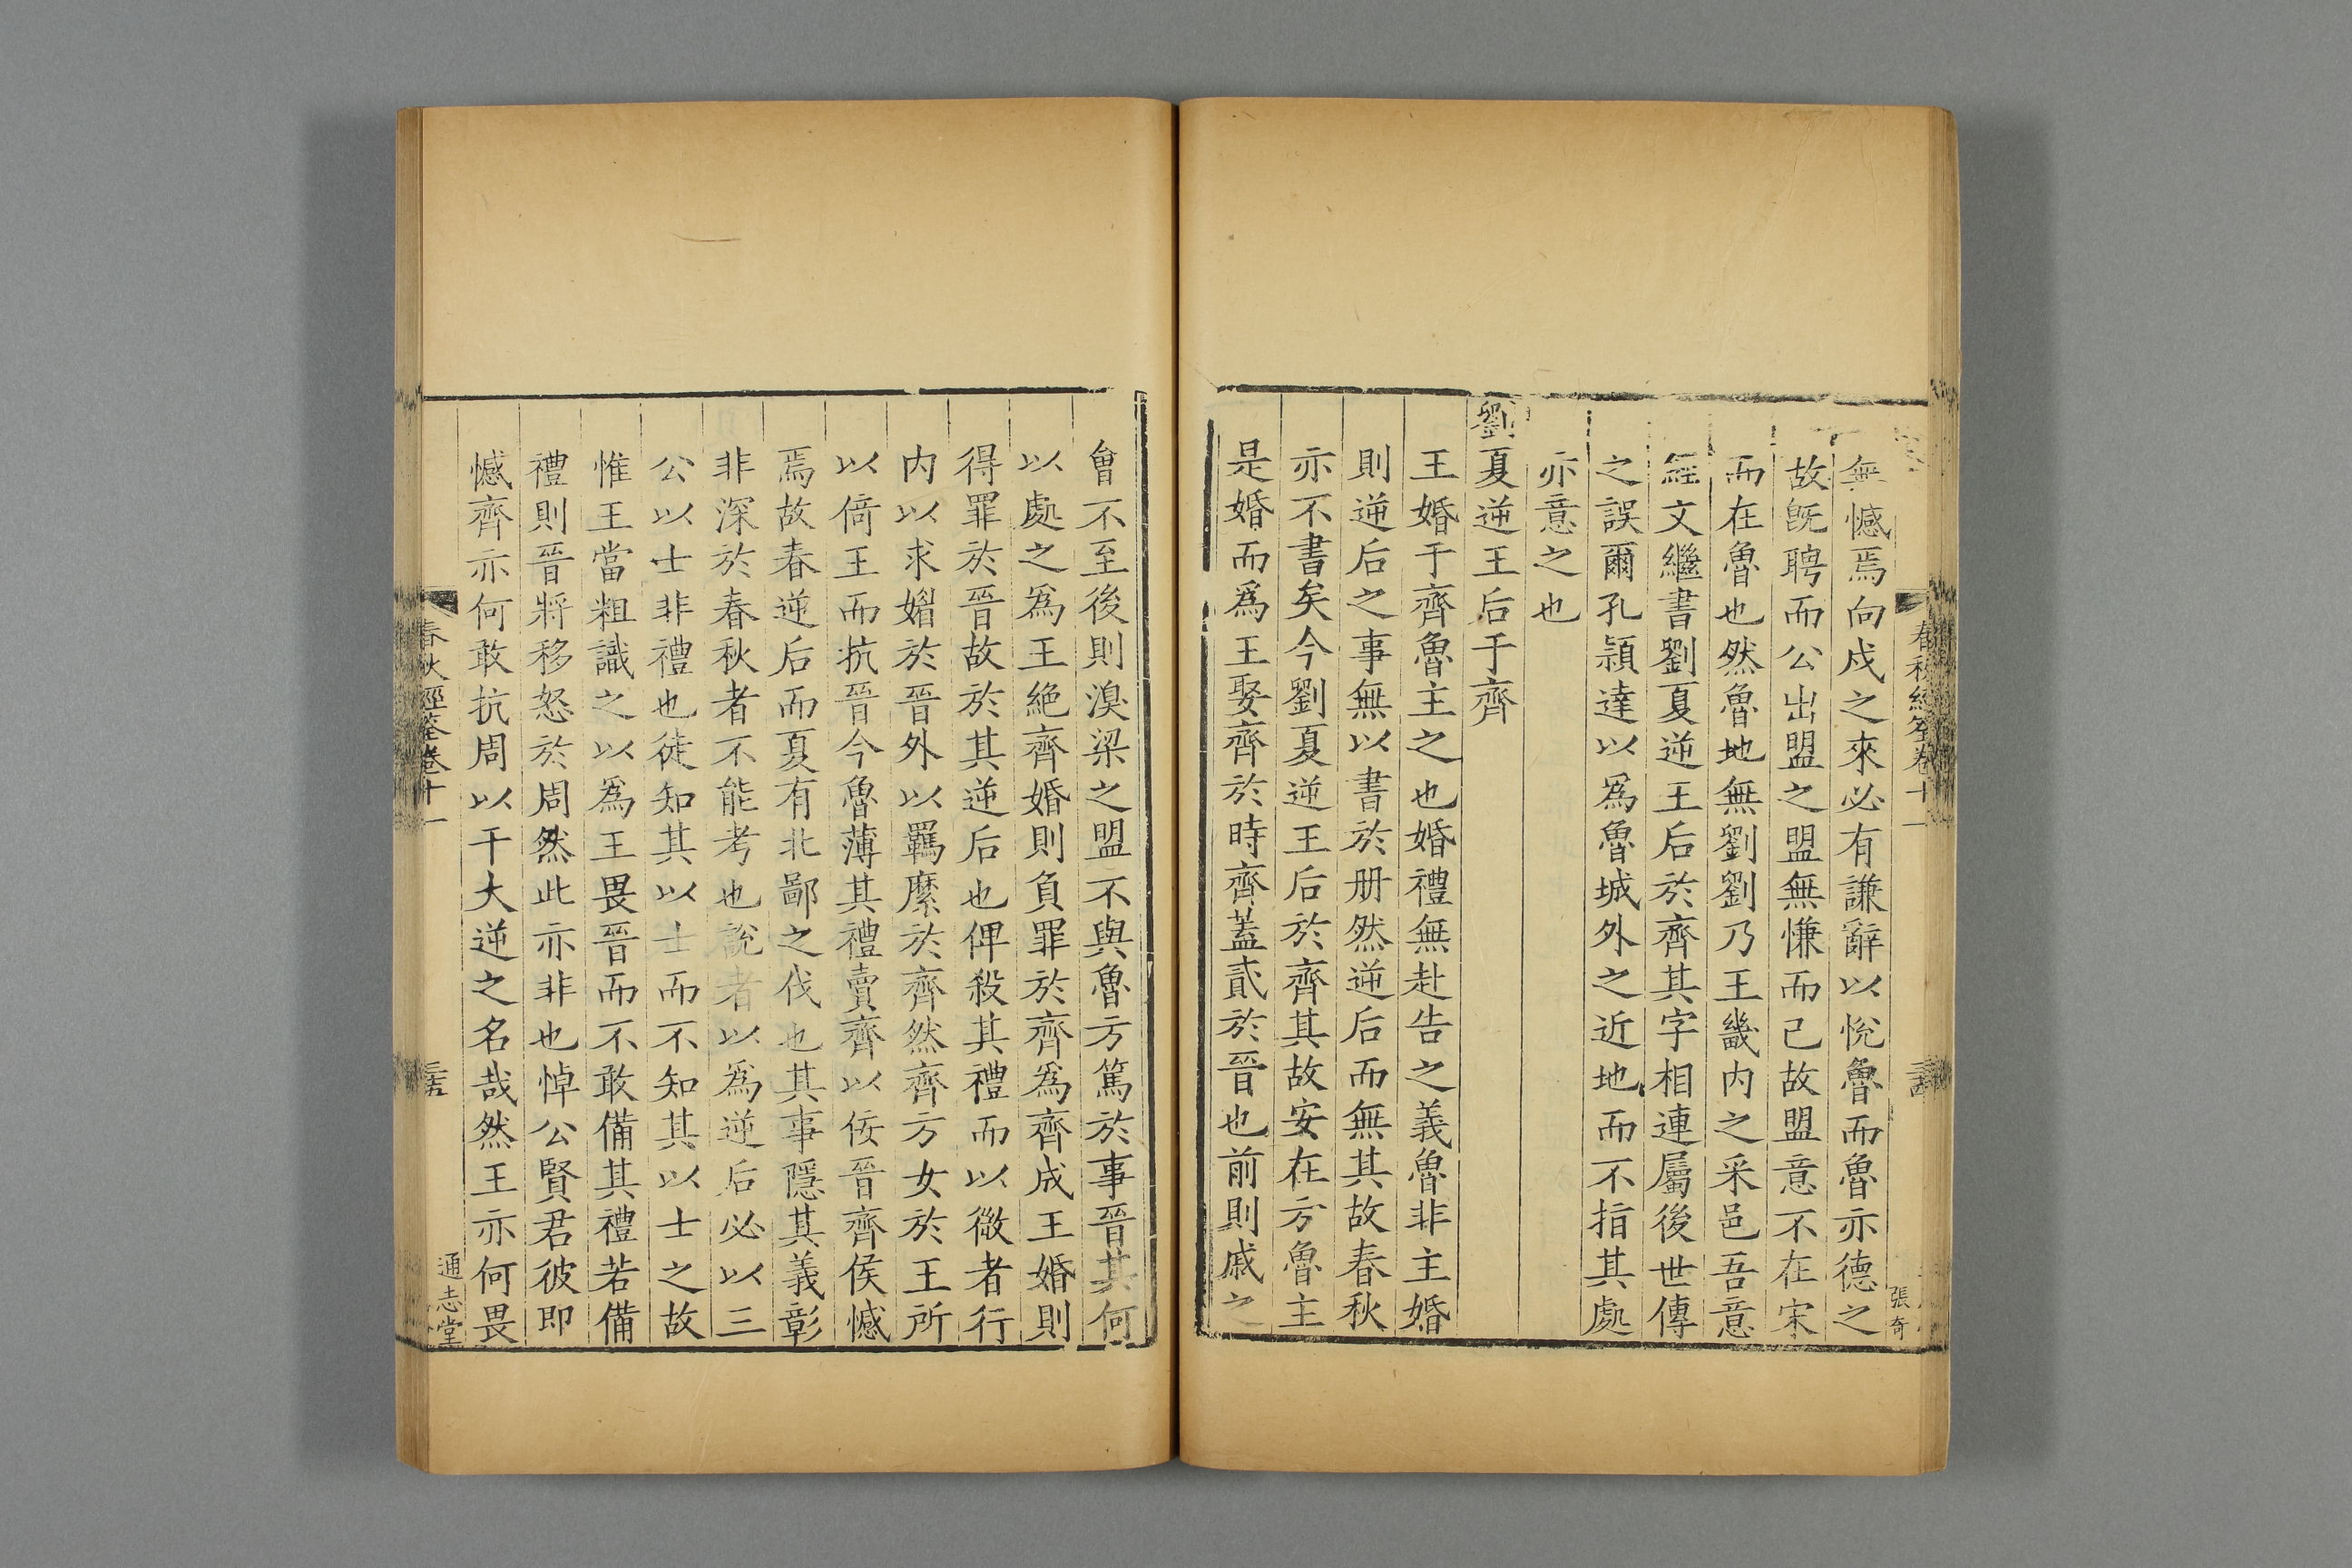 春秋經筌卷十一
張奇
無憾焉向戌之來必有謙辭以悅魯而魯亦德之
故旣聘而公出盟之盟無慊而已故盟意不在宋
而在魯也然魯地無劉劉乃王畿内之采邑吾意
經文繼書劉夏逆王后於齊其字相連屬後世傳
之誤爾孔穎達以爲魯城外之近地而不指其處
亦意之也
劉夏逆王后于齊
王婚于齊魯主之也婚禮無赴告之義魯非主婚
則逆后之事無以書於册然逆后而無其故春秋
亦不書矣今劉夏逆王后於齊其故安在方魯主
是婚而爲王娶齊於時齊蓋貳於晉也前則戚之
會不至後則湨梁之盟不與魯方篤於事晉其何
以處之爲王絶齊婚則負罪於齊爲齊成王婚則
得罪於晉故於其逆后也俾殺其禮而以微者行
内以求媚於晉外以羈縻於齊然齊方女於王所
以倚王而抗晉今魯薄其禮賣齊以佞晉齊侯憾
焉故春逆后而夏有北鄙之伐也其事隱其義彰
非深於春秋者不能考也說者以爲逆后必以三
公以士非禮也徒知其以士而不知其以士之故
惟王當粗識之以爲王畏晉而不敢備其禮若備
禮則晉將移怒於周然此亦非也悼公賢君彼即
憾齊亦何敢抗周以干大逆之名哉然王亦何畏
春秋經筌卷十一
三五
通志堂